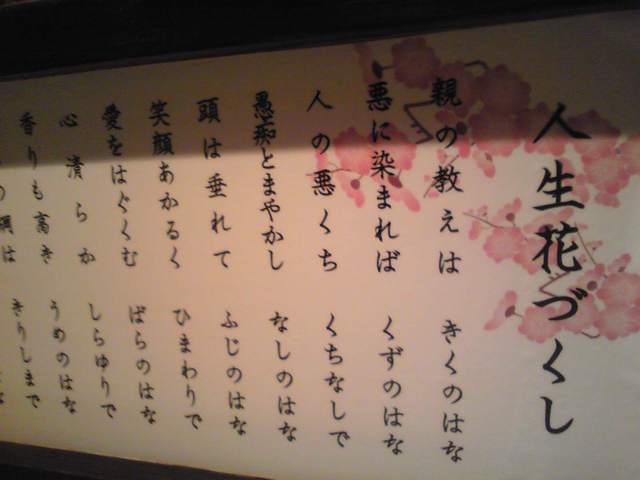 人生花づくし
親の教えは きくのはな
悪に染まれば くずのはな
人の悪くち くちなしで
愚痴とまやかし なしのはな
頭は垂れて ふじのはな
笑顔あかるく ひまわりで
愛をはぐくむ ばらのはな
心清らか しらゆりで
香りも高き うめのはな
の綱は きりしまで